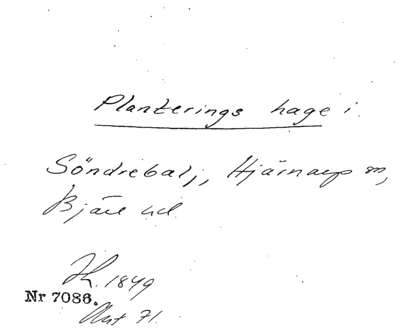 Planterings hage i
Söndrebalj, Hjärnarp sn,
Bjäre hd.
1849
Nr 7086.
71.